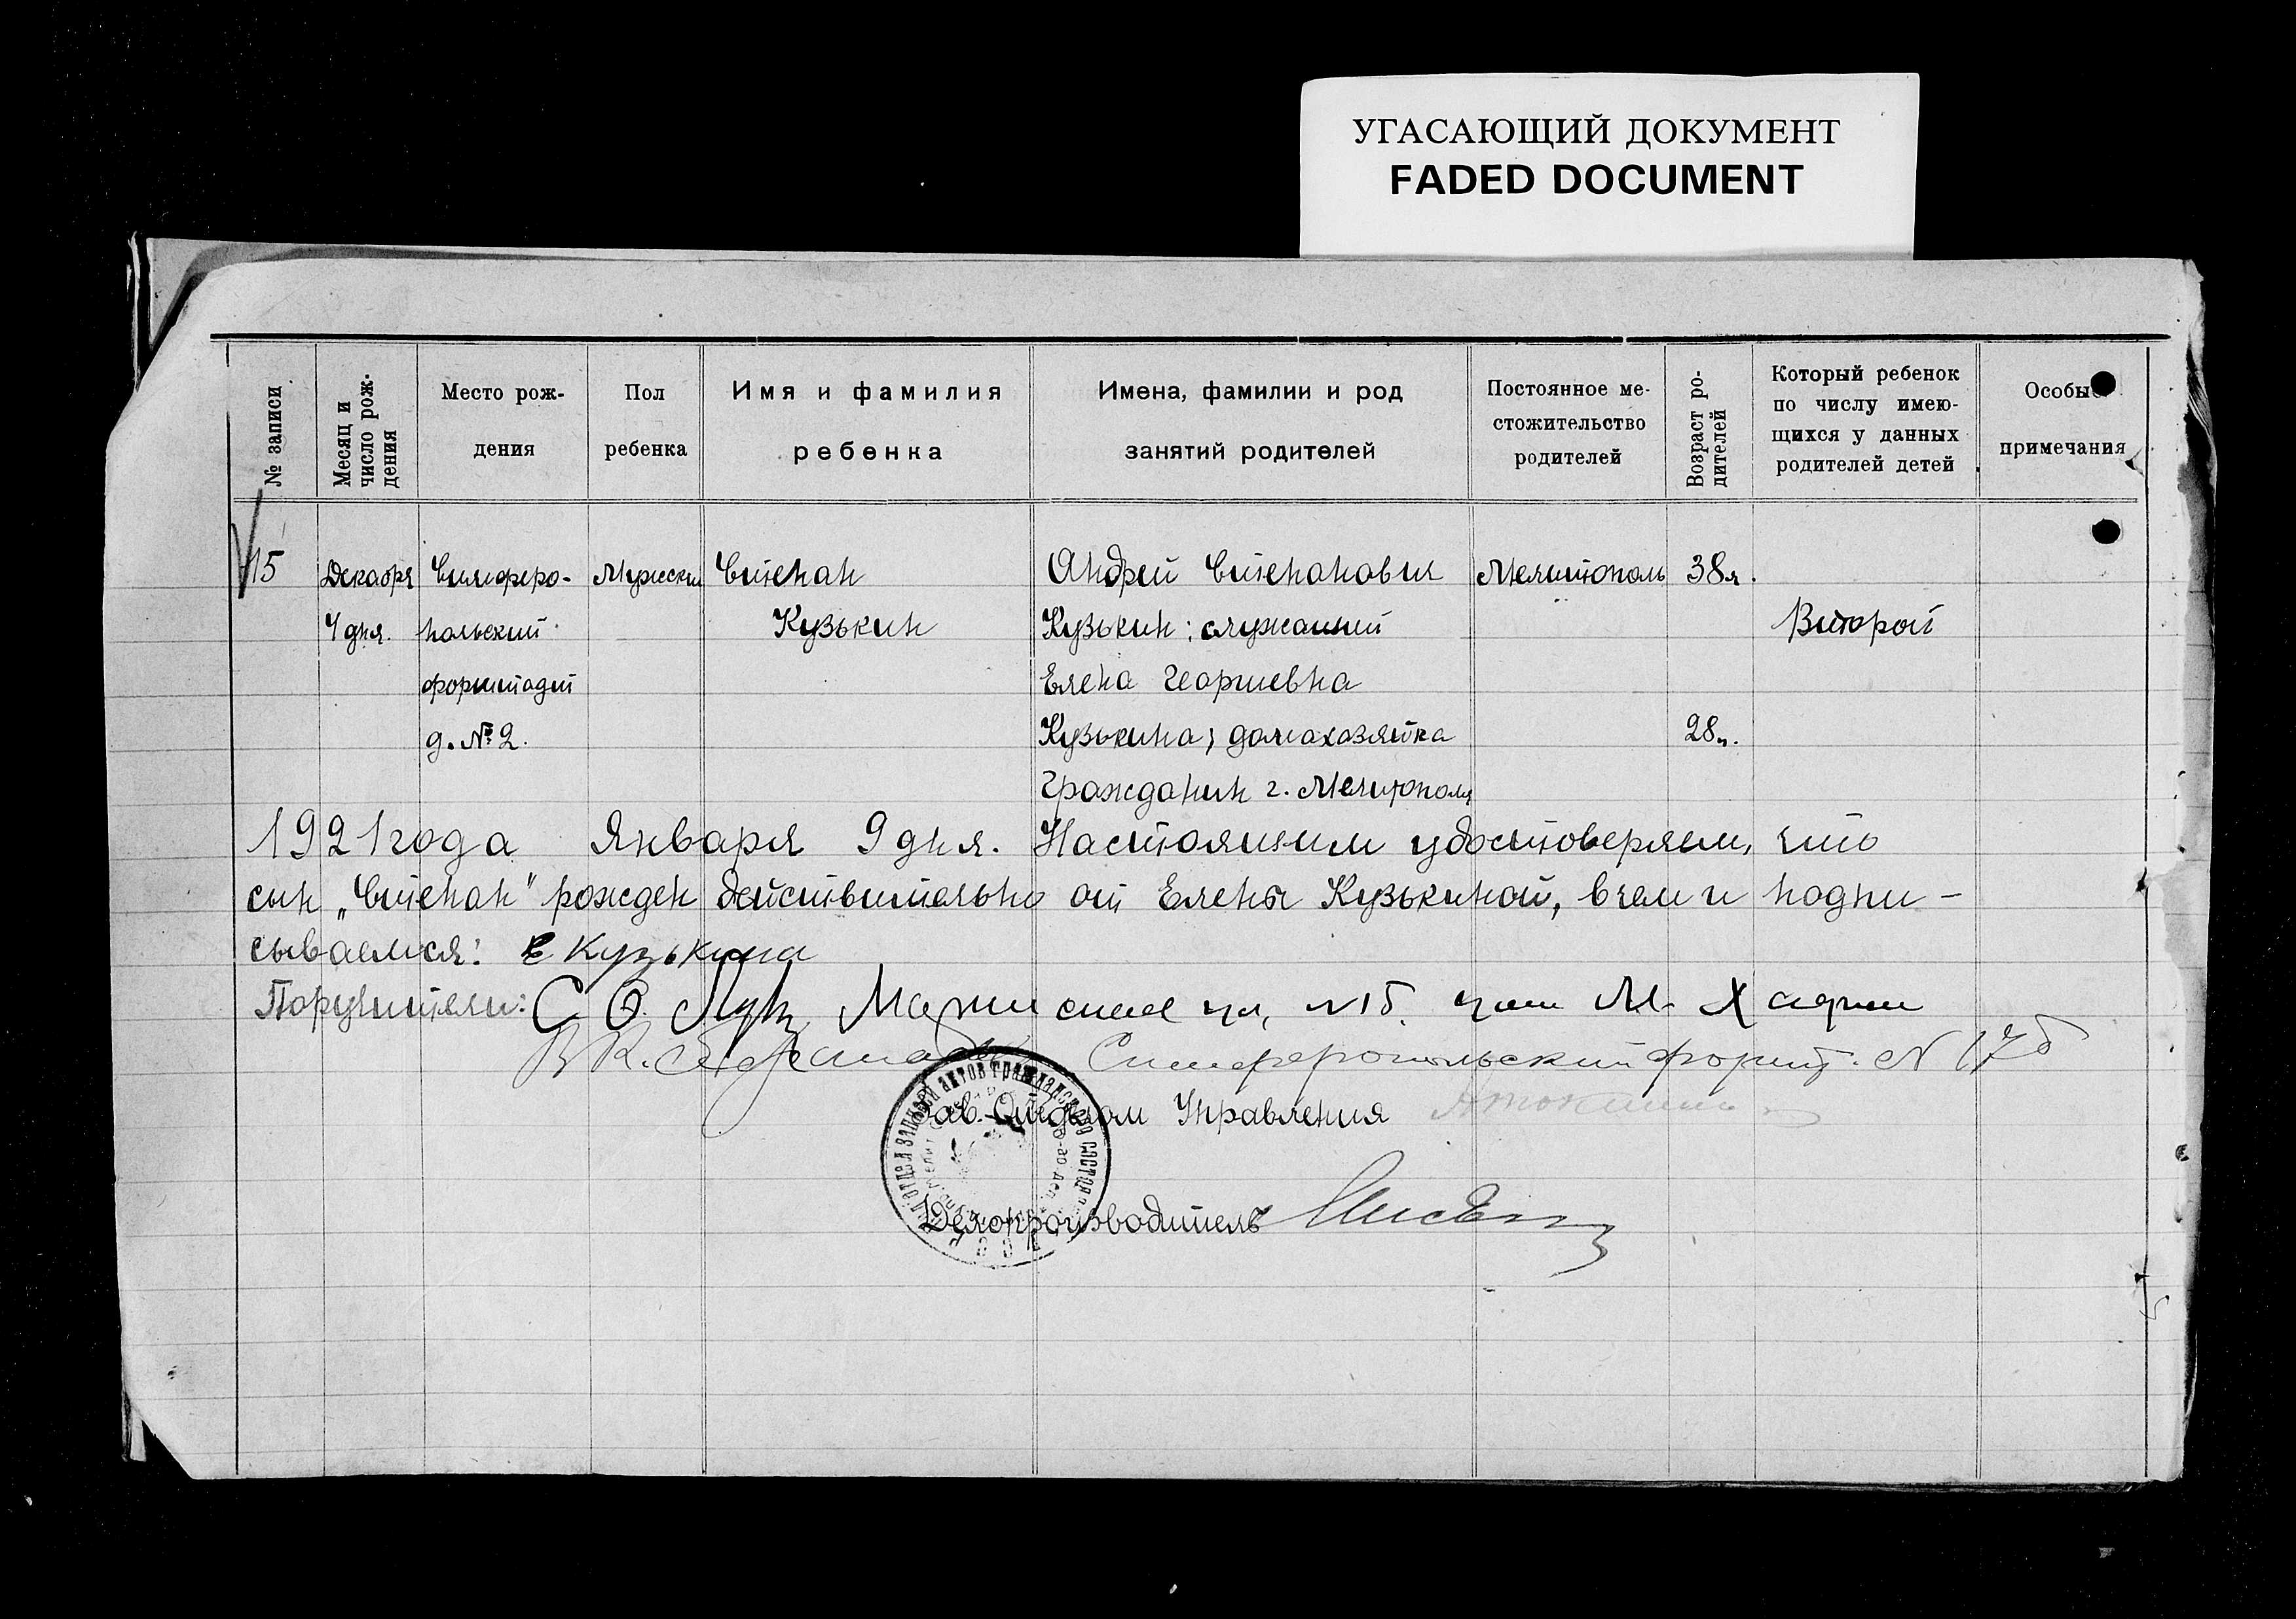 УГАСАЮЩИЙ ДОКУМЕНТ
FADED DOCUMENT
№ записи
Месяц и
число рож-
дения
Место рож-
дения
Пол
ребенка
Имя и фамилия
ребенка
Имена, фамилии и род
занятий родителей
Постоянное ме-
стожительство
родителей
Возраст ро-
дителей
Который ребенок
по числу имею-
щихся у данных
родителей детей
Особые
примечания
15
Декабря
4 дня.
Симферо-
польский
форштадт
д. № 2.
Мужской
Степан
Кузькин
Андрей Степанович
Кузькин; служащий
Елена Георгиевна
Кузькина; домахозяйка
Гражданин г. Мелитополя
Мелитополь
38 л.
28 л.
Второй
1921 года Января 9 дня. Настоящим удостоверяем, что
сын „Степан" рожден действительно от Елены Кузькиной, в чем и подпи-
сываемся: Е Кузькина
Поручители: С О.
В К. Симферопольский форшт. N 17б
Зав. Отделом Управления
Делопроизводитель
отдел записей актов гражданского состоя